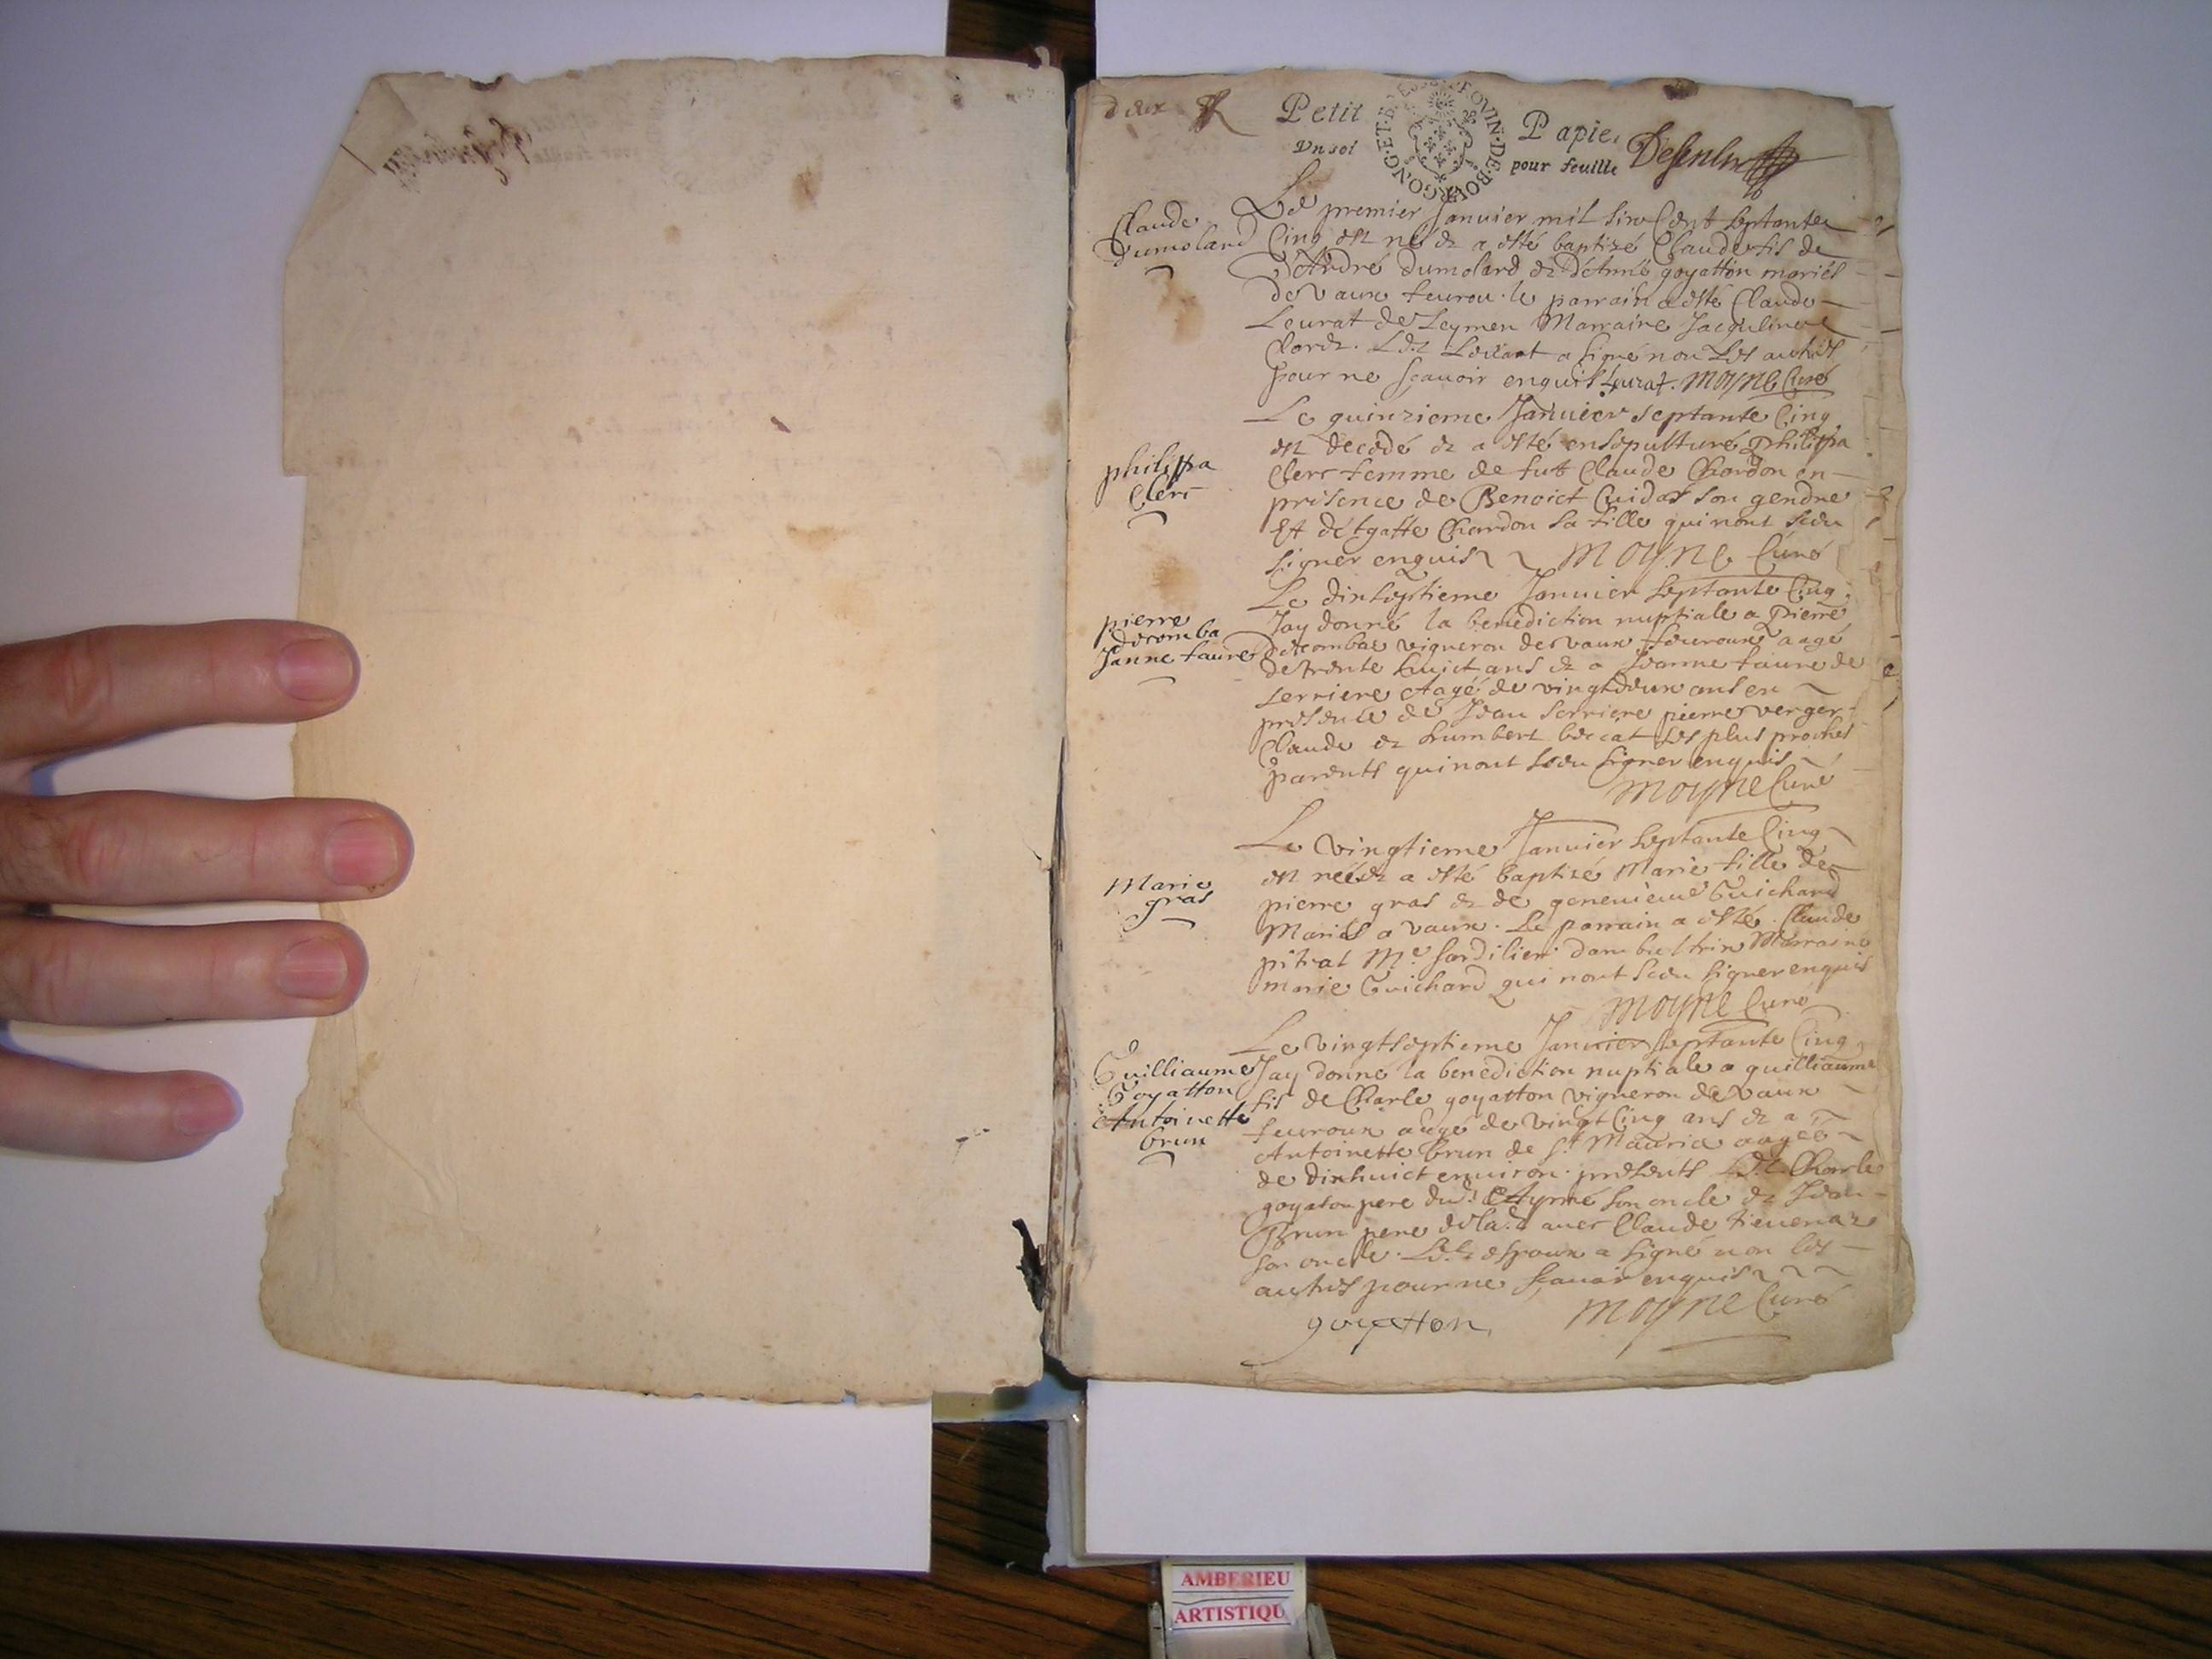 deux
Petit Papie
Un sol pour feuille
BOVRGONG·ET·BRES
PROVIN·DE
Claude
Dumolard
Le premier Januier mil six Cent septante
Cinq est né et a esté baptizé Claude fils de
D'André dumolard et D'Anne goyatton mariés
de vaux feurou. le parrain a esté Claude
Leurat de Leymen Marraine Jacqueline
Clerc. Led. Leurat a signé non Les autres
pour ne scauoir enquis Leurat. Moyne Curé
philippa
Clerc
Le quinzieme Januier septante Cinq
est decedé et a esté ensepulturé Philippa
Clerc femme de fut Claude Chardon en
presence de Benoict Cuidat son gendre
Et d'Agatte Chardon sa fille qui nont sceu
signer enquis Moyne Curé
pierre
decomba
Janne faure
Le dixseptieme Januier septante Cinq
Jay donné la benediction nuptiale a Pierre
decombas vigneron de vaux feuroux aagé
de trente huict ans et a Jeanne faure de
serriere aagé de vingtdeux ans en
presence de Jean serriere pierre verger
Claude et humbert beccat Les plus proches
parents qui nont sceu signer enquis
Moyne Curé
Marie
gras
Le vingtieme Januier septante Cinq
est née et a esté baptizé Marie fille de
pierre gras et de geneuieue Guichard
Mariés a vaux. Le parrain a esté Claude
pitrat Me dambultrin Marraine
marie Guichard qui nont sceu signer enquis
Moyne Curé
Guilliaume
Goyatton
Antoinette
brun
Le vingtseptieme Januier septante Cinq
Jay donné la benediction nuptiale a guilliaume
fils de Charle goyatton vigneron de vaux
feuroux aagé de vingt Cinq ans et a
Antoinette brun de St Mauric aagée
de dixhuict enuiron. presents Led. Charle
goyaton pere dud. Aymé son oncle et Jean
Brun pere de lad. auec Claude tieuenaz
son oncle. Led. espoux a signé non les
autres pour ne scauoir enquis
goyatton Moyne Curé
AMBERIEU
ARTISTIQU